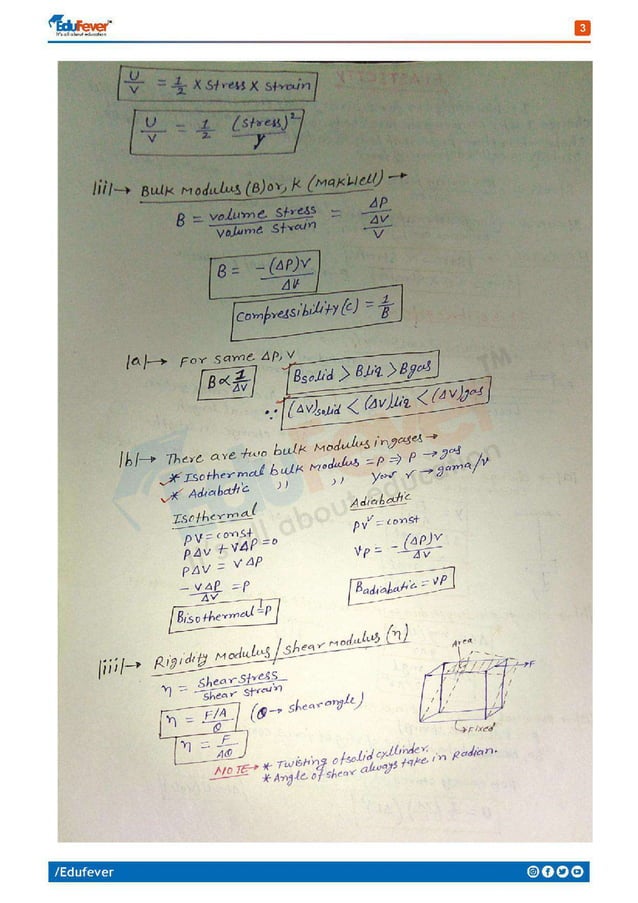 EduFever
It's all about education
3
U/V = 1/2 × stress × strain
U/V = 1/2 (stress)²/Y
|ii|→ Bulk Modulus (B) or, K (Makwell) →
B = volume stress/volume strain = ΔP/(ΔV/V)
B = -(ΔP)V/ΔV
Compressibility (C) = 1/B
|a|→ For same ΔP, V
B ∝ 1/ΔV
Bsolid > Bliq > Bgas
∵ (ΔV)solid < (ΔV)liq < (ΔV)gas
|b|→ There are two bulk Modulus in gases →
* Isothermal bulk modulus = P ⇒ P → gas
* Adiabatic ,, ,, r → gama/v
Isothermal
PV = const
PΔV + VΔP = 0
PΔV = VΔP
-VΔP/ΔV = P
Bisothermal = P
Adiabatic
PVᵛ = const
vP = -(ΔP)V/ΔV
Badiabatic = vP
|iii|→ Rigidity Modulus / shear modulus (η)
η = shear stress/shear strain
η = F/A/θ (θ → shear angle)
η = F/Aθ
Area
F
Fixed
NOTE → * Twisting of solid cyllinder.
* Angle of shear always take in Radian.
EduFever
It's all about education
TM
/Edufever